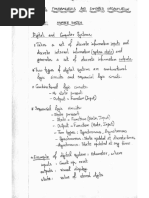 DIGITAL FUNDAMENTALS AND COMPUTER ORGANIZATION
NUMBER SYSTEM
Digital and Computer Systems
- Takes a set of discrete information inputs and
discrete internal information (system state) and
generates a set of discrete information outputs.
- Two types of digital systems are combinational
logic circuits and sequential logic circuits.
* Combinational logic circuits
- No state present
- Output = Function (Input)
* Sequential logic circuits
- State present
- State = Function (State, Input)
- Output = Function (State, Input)
- Two types: Synchronous, Asynchronous
- Synchronous: State updated at discrete times
- Asynchronous: State updated at any time
* Example of digital system: Odometer, where
inputs: Count up, reset
outputs: visual display
state: value of stored digits